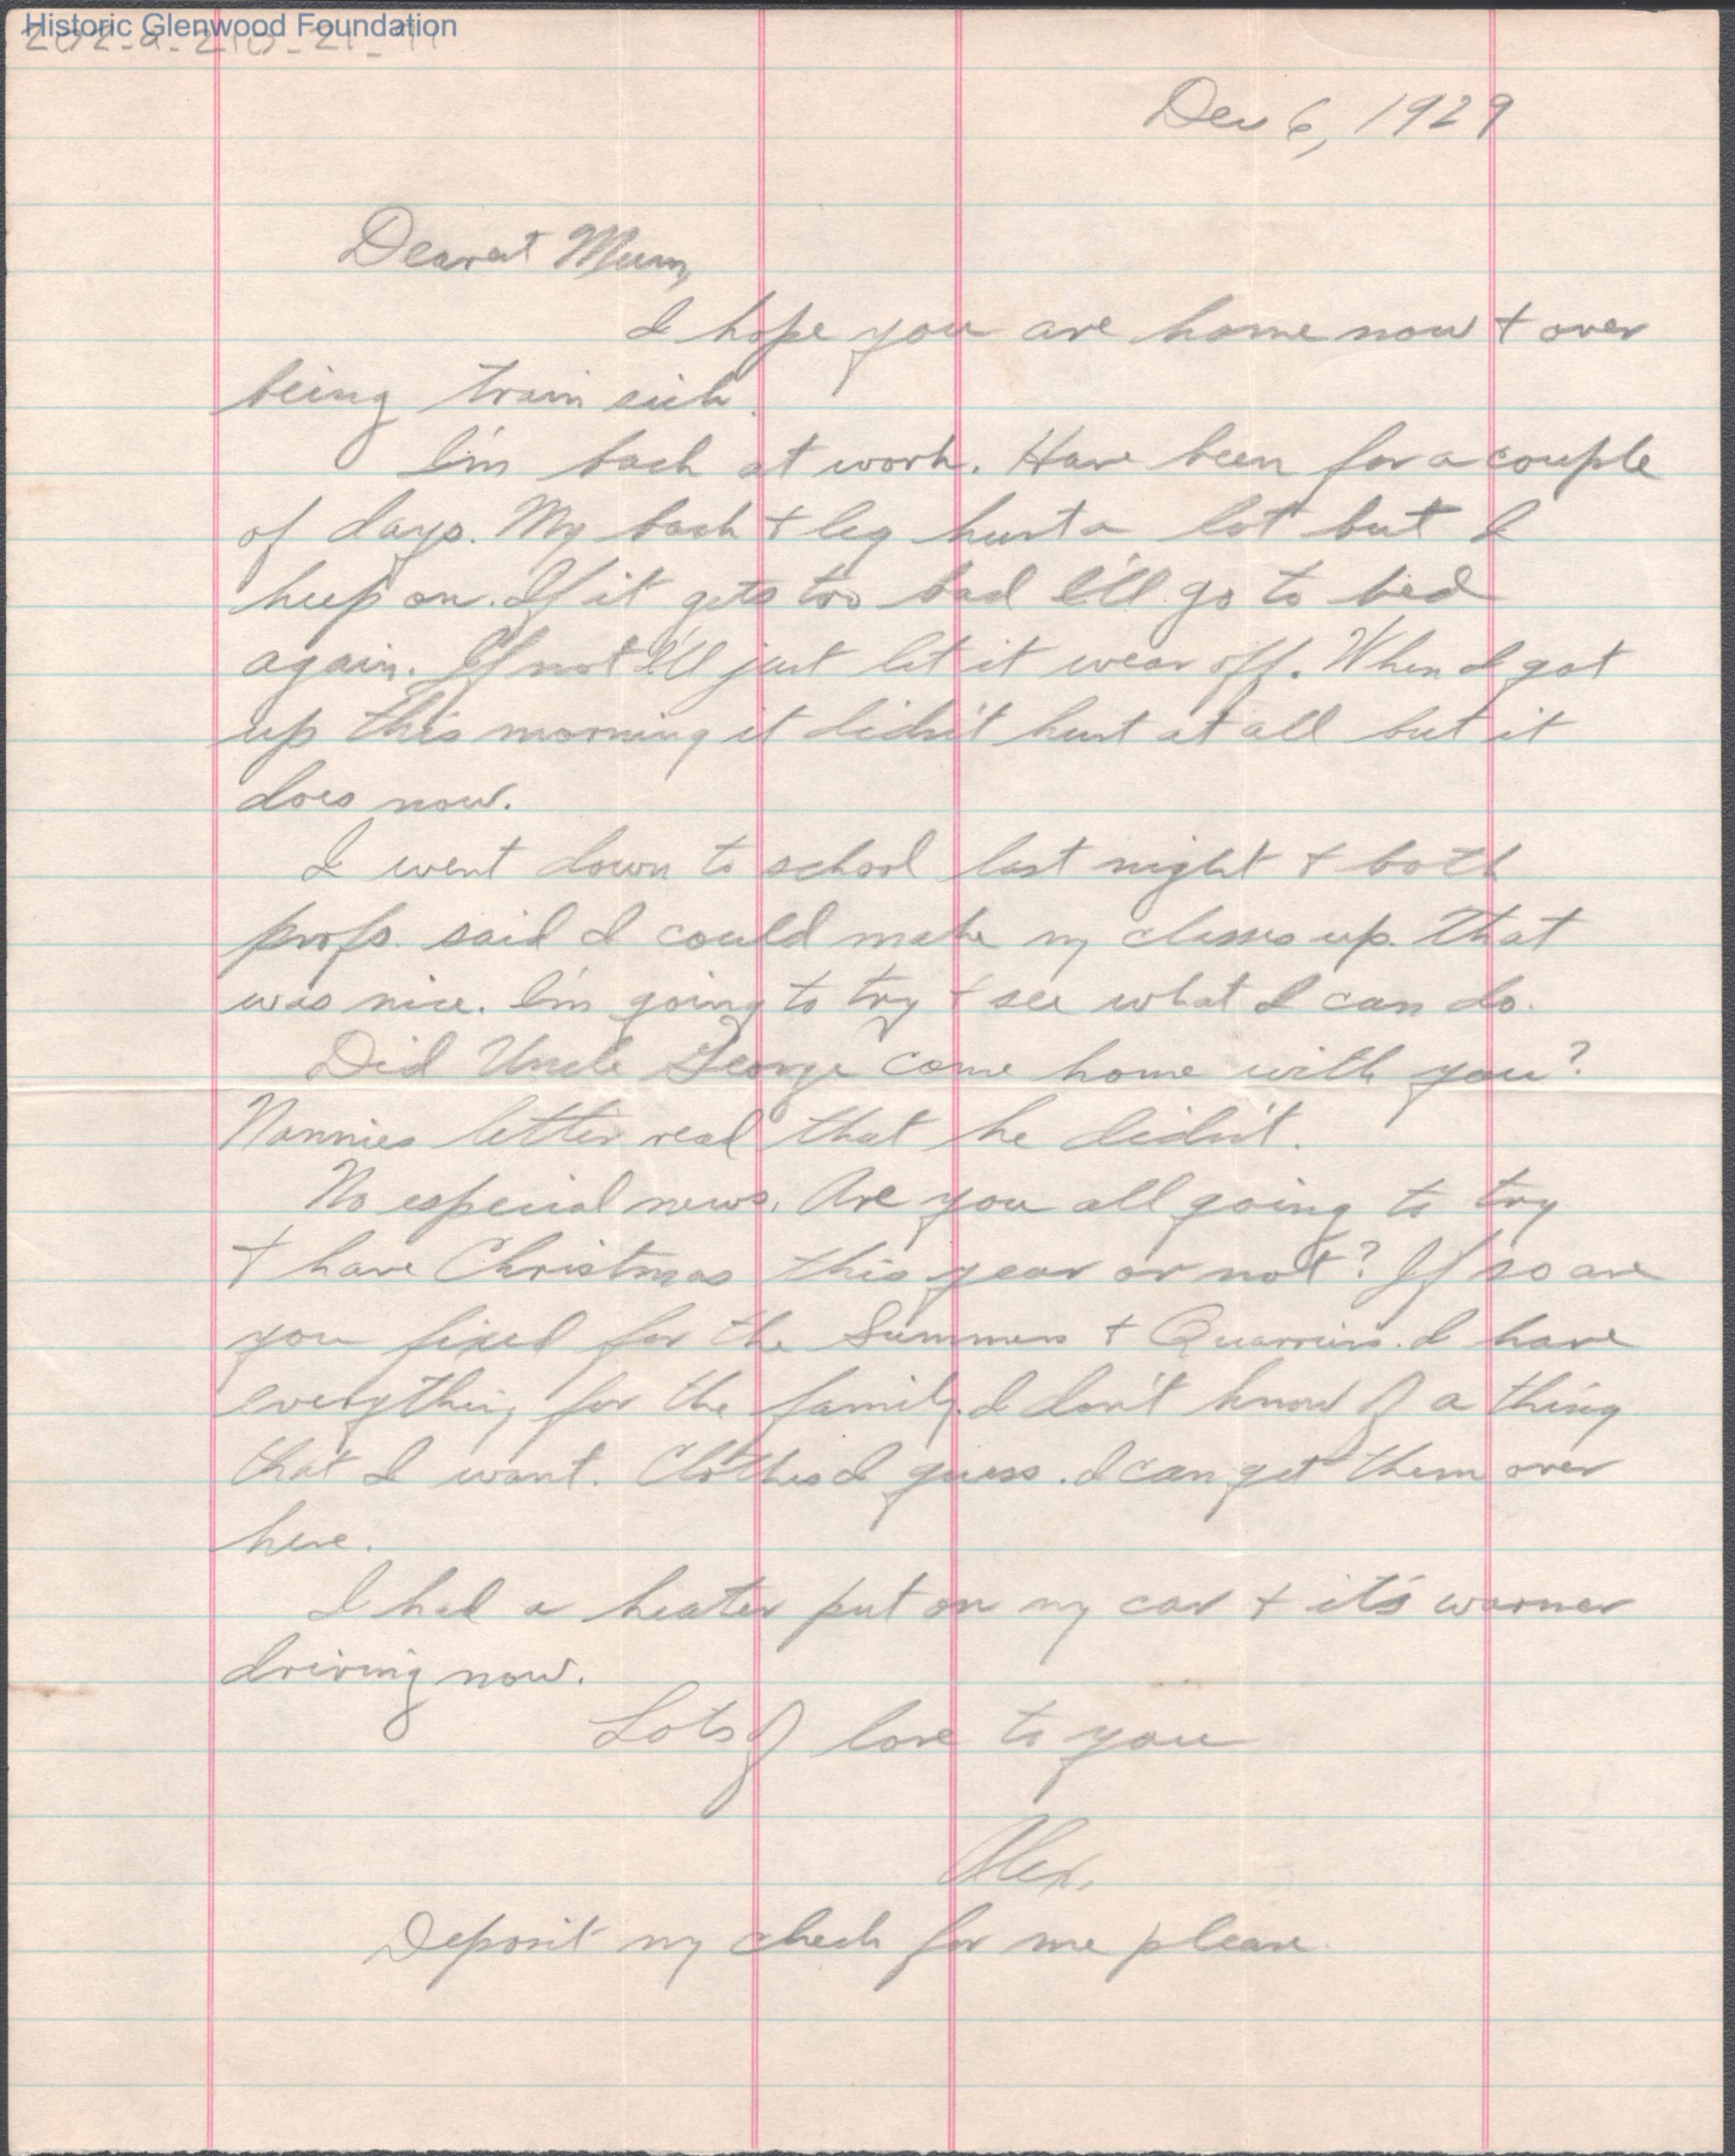 Historic Glenwood Foundation
Dec 6, 1929
Dearest Mum,
I hope you are home now + over
being train sick.
I'm back at work. Have been for a couple
of days. My back + leg hurt a lot but I
keep on. If it gets too bad I'll go to bed
again. If not I'll just let it wear off. When I got
up this morning it didn't hurt at all but it
does now.
I went down to school last night + both
profs. said I could make my classes up. That
was nice. I'm going to try + see what I can do.
Did Uncle George come home with you?
Nannies letter read that he didn't.
No especial news. Are you all going to try
+ have Christmas this year or not? If so are
you fixed for the Summers + Quarriers. I have
everything for the family. I don't know of a thing
that I want. Clothes I guess. I can get them over
here.
I had a heater put on my car + it's warmer
driving now.
Lots of love to you
Alex.
Deposit my check for me please.